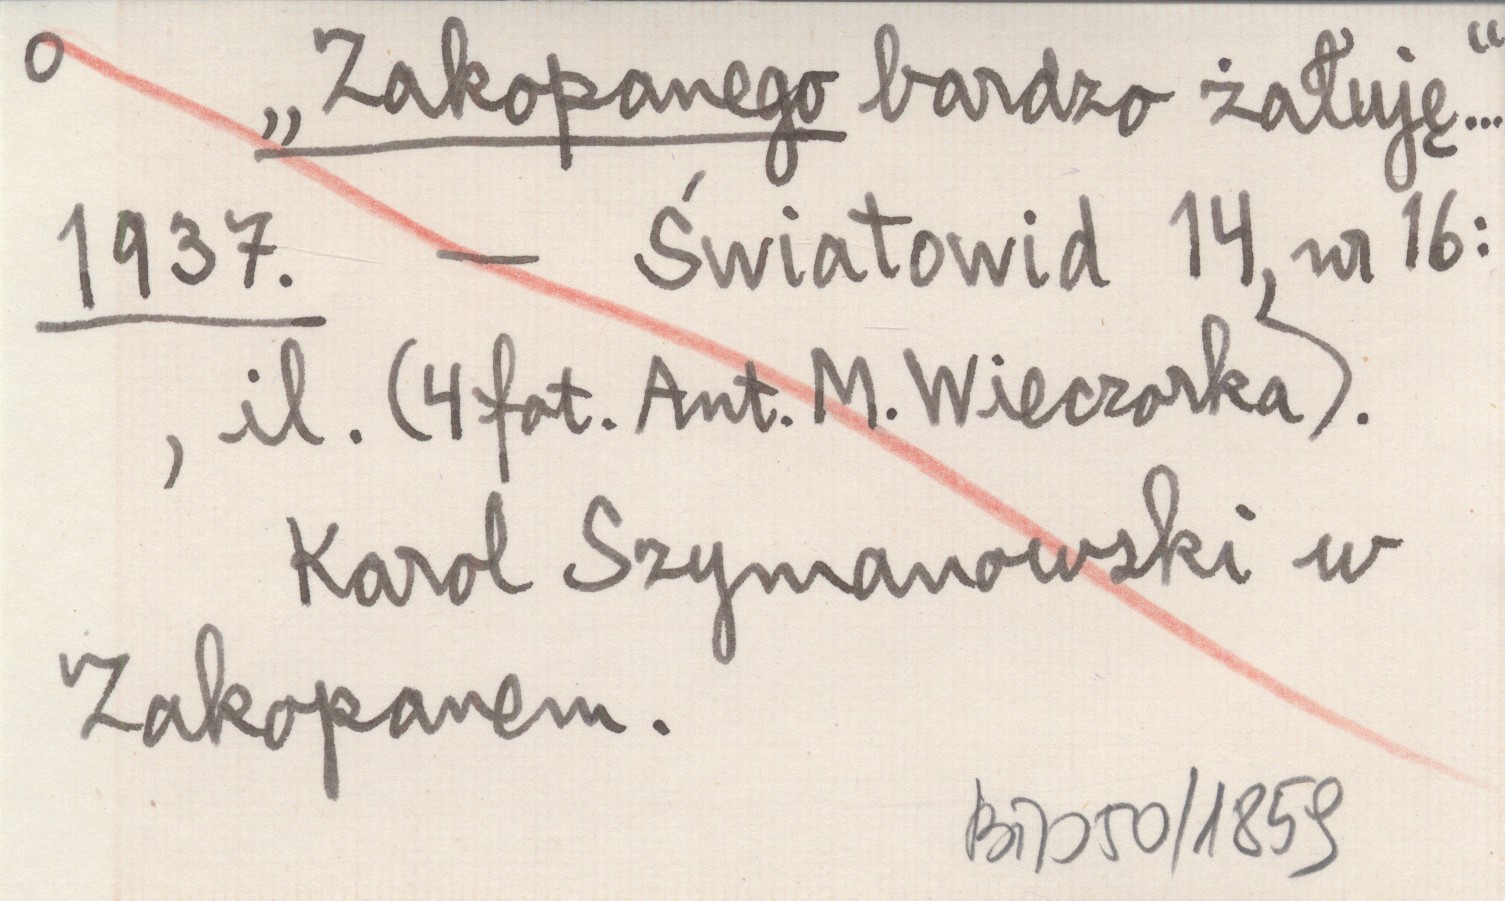 o „Zakopanego bardzo żałuję..."
1937. — Światowid 14, nr 16:
, il. (4 fot. Ant. M. Wieczorka).
Karol Szymanowski w
Zakopanem.
50/1859